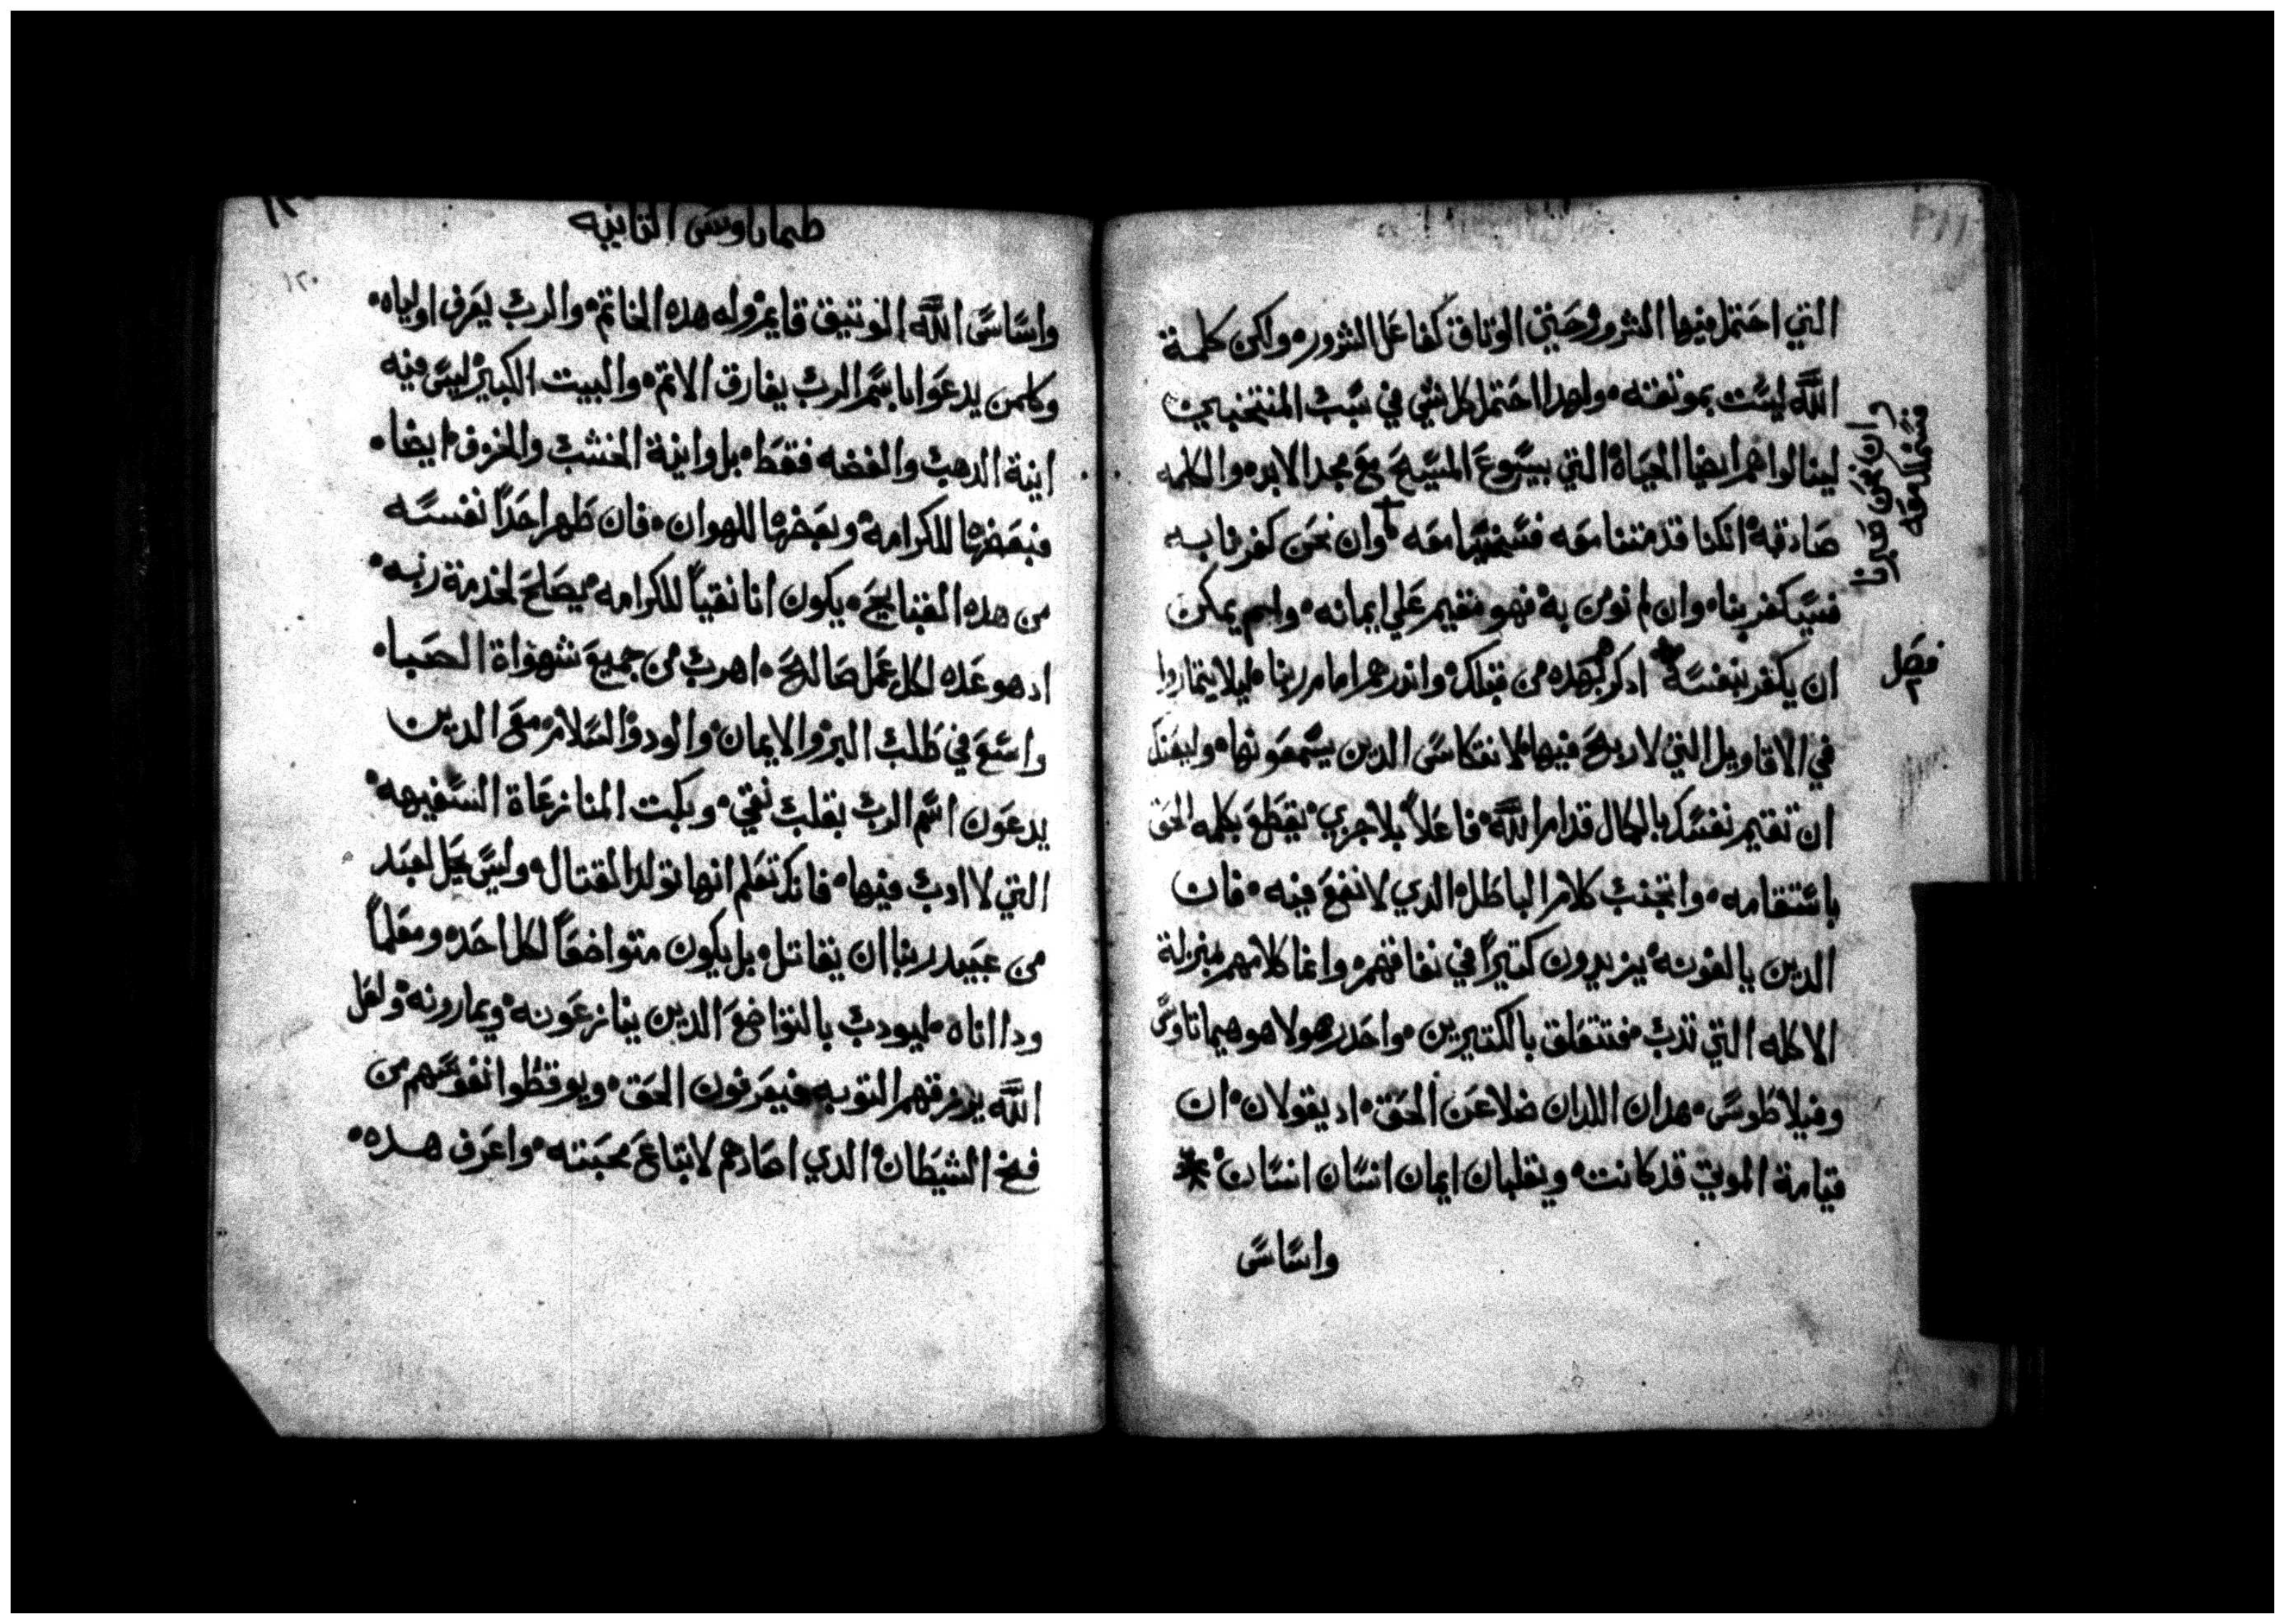 التي احتمل فيها الشرور حتي الوثاق كفاعل الشرور ولكن كلمة
الله ليست بموثقه ولهدا احتمل كل شي في سبب المنتخبين
لينالوا هم ايضا الحياة التي بيسوع المسيح مع مجد الابد والكلمه
صادقه انكنا قد متنا معه فسنحيا معه وان نحن كفرنا به
وان نحن صبرنا
فسنملك معه
فسيكفر بنا وان لم نومن به فهو مقيم علي ايمانه وليس يمكن
ان يكفر بنفسه ادكرهم بهده من قبلك واندرهم امام ربنا ليلا يتماروا
فصل
في الاقاويل التي لا ربح فيها لانتكاس الدين يسمعونها وليعنك
ان تقيم نفسك بالكمال قدام الله فاعلاً بلا خزي يقطع بكلمه الحق
باستقامه واتجنب كلام الباطل الدي لا نفع فيه فان
الدين يالفونه يزيدون كتيراً في نفاقهم وانما كلامهم بمنزلة
الاكله التي تدب فتتعلق بالكتيرين واحد هولا هو هيماناوس
وفيلاطوس هدان اللدان ضلا عن الحق اد يقولان ان
قيامة الموتي قد كانت ويقلبان ايمان انسان انسان
واساس
طيماتاوس التانيه
١٢٠
واساس الله الوتيق قايم وله هده الخاتم والرب يعرف اولياه
وكلمن يدعوا باسم الرب يفارق الاتم والبيت الكبير ليس فيه
انية الدهب والفضه فقط بل وانية الخشب والخزف ايضا
فبعضها للكرامه وبعضها للهوان فان طهر احداً نفسه
من هده القبايح يكون انا نقياً للكرامه يصلح لخدمة ربه
اد هو عده لكل عمل صالح اهرب من جميع شهواة الصبا
واسع في طلب البر والايمان والود والسلام مع الدين
يدعون اسم الرب بقلب نقي وبكت المنازعاة السفيهه
التي لا ادب فيها فانك تعلم انها تولد القتال وليس يحل لعبد
من عبيد ربنا ان يقاتل بل يكون متواضعاً لكل احد ومعلماً
ودا اناه ليودب بالتواضع الدين ينازعونه ويمارونه ولعل
الله يرزقهم التوبه فيعرفون الحق ويوقظوا نفوسهم من
فخ الشيطان الدي اصادهم لابتاع محبته واعرف هده